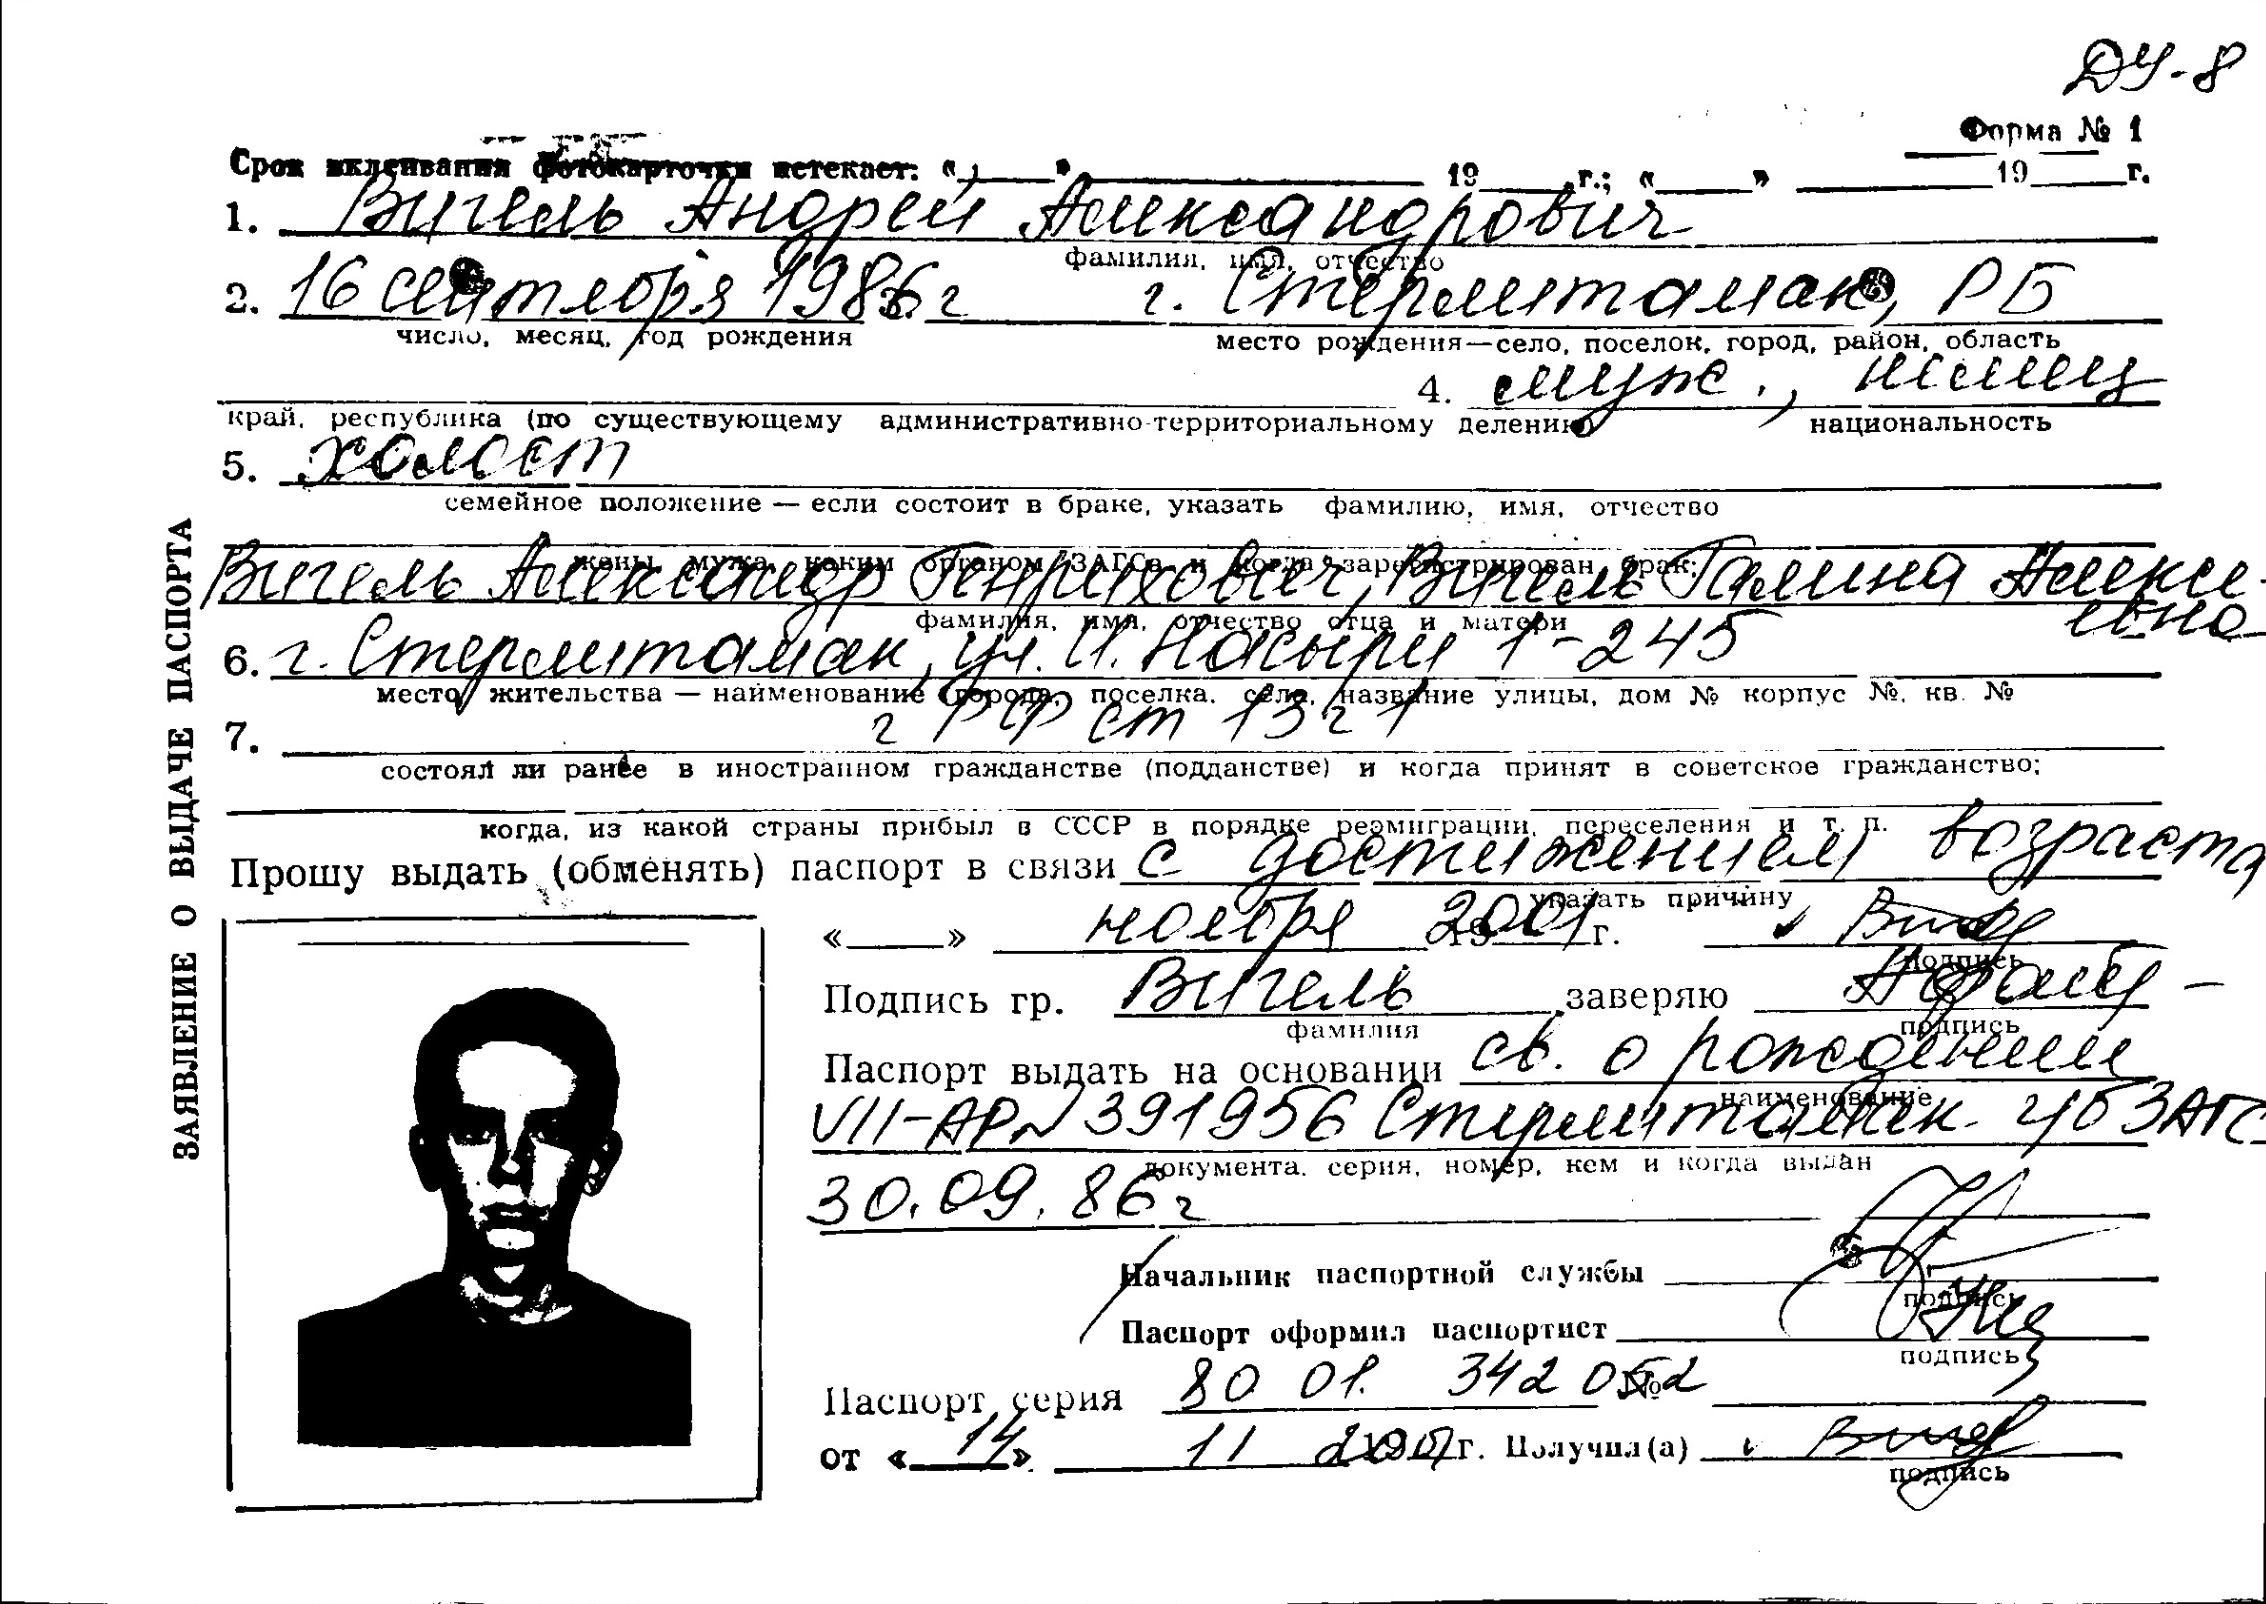 ДУ-8
Форма № 1
Срок вклеивания фотокарточки истекает: «___» ______ 19___г.; «___» ______ 19___г.
1. Вигель Андрей Александрович
фамилия, имя, отчество
2. 16 сентября 1986 г г. Стерлитамак, РБ
число, месяц, год рождения место рождения—село, поселок, город, район, область
4. муж., немец
край, республика (по существующему административно-территориальному делению) национальность
5. холост
семейное положение — если состоит в браке, указать фамилию, имя, отчество
жены, мужа, каким органом ЗАГСа и когда зарегистрирован брак;
Вигель Александр Генрихович, Вигель Галина Алексеевна
фамилия, имя, отчество отца и матери
6. г. Стерлитамак, ул. И. Насыри 1-245
место жительства — наименование города, поселка, села, название улицы, дом № корпус №, кв. №
7. г РФ ст 13 г 1
состоял ли ранее в иностранном гражданстве (подданстве) и когда принят в советское гражданство;
когда, из какой страны прибыл в СССР в порядке реэмиграции, переселения и т. п.
Прошу выдать (обменять) паспорт в связи с достижением возраста
указать причину
«___» ноября 2001 г.
подпись
Подпись гр. Вигель заверяю
фамилия подпись
Паспорт выдать на основании св. о рождении
наименование
VII-АР № 391956 Стерлитамак. ЗАГС
документа, серия, номер, кем и когда выдан
30.09.86 г
Начальник паспортной службы
подпись
Паспорт оформил паспортист
подпись
Паспорт серия 80 01. № 342052
от «14» 11 2001 г. Получил(а)
подпись
ЗАЯВЛЕНИЕ О ВЫДАЧЕ ПАСПОРТА